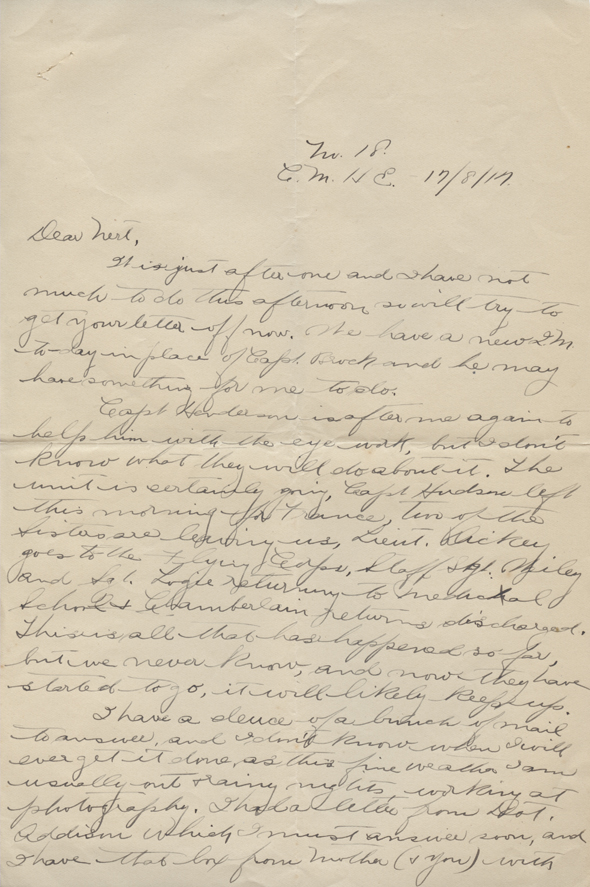 No. 18.
C. M. H E. 17/8/17.
Dear Nert,
It is just after one and I have not
much to do this afternoon, so will try to
get your letter off now. We have a new
to-day in place of Capt. Brock and he may
have something for me to do.
Capt Henderson is after me again to
help him with the eye work, but I don't
know what they will do about it. The
unit is certainly going, Capt Hudson left
this morning for France, two of the
Sisters are leaving us, Lieut. Dickey
goes to the Flying Corps, Staff Sgt. Wiley
and Sgt. Logie returning to medical
School & Chamberlain returns discharged.
This is all that has happened so far,
but we never know, and now they have
started to go, it will likely keep up.
I have a deuce of a bunch of mail
to answer, and I don't know when I will
ever get it done, as this fine weather I am
usually out & rainy nights, working at
photography. I had a letter from Dot.
Addison which I must answer soon, and
I have that box from Mother (& you) with